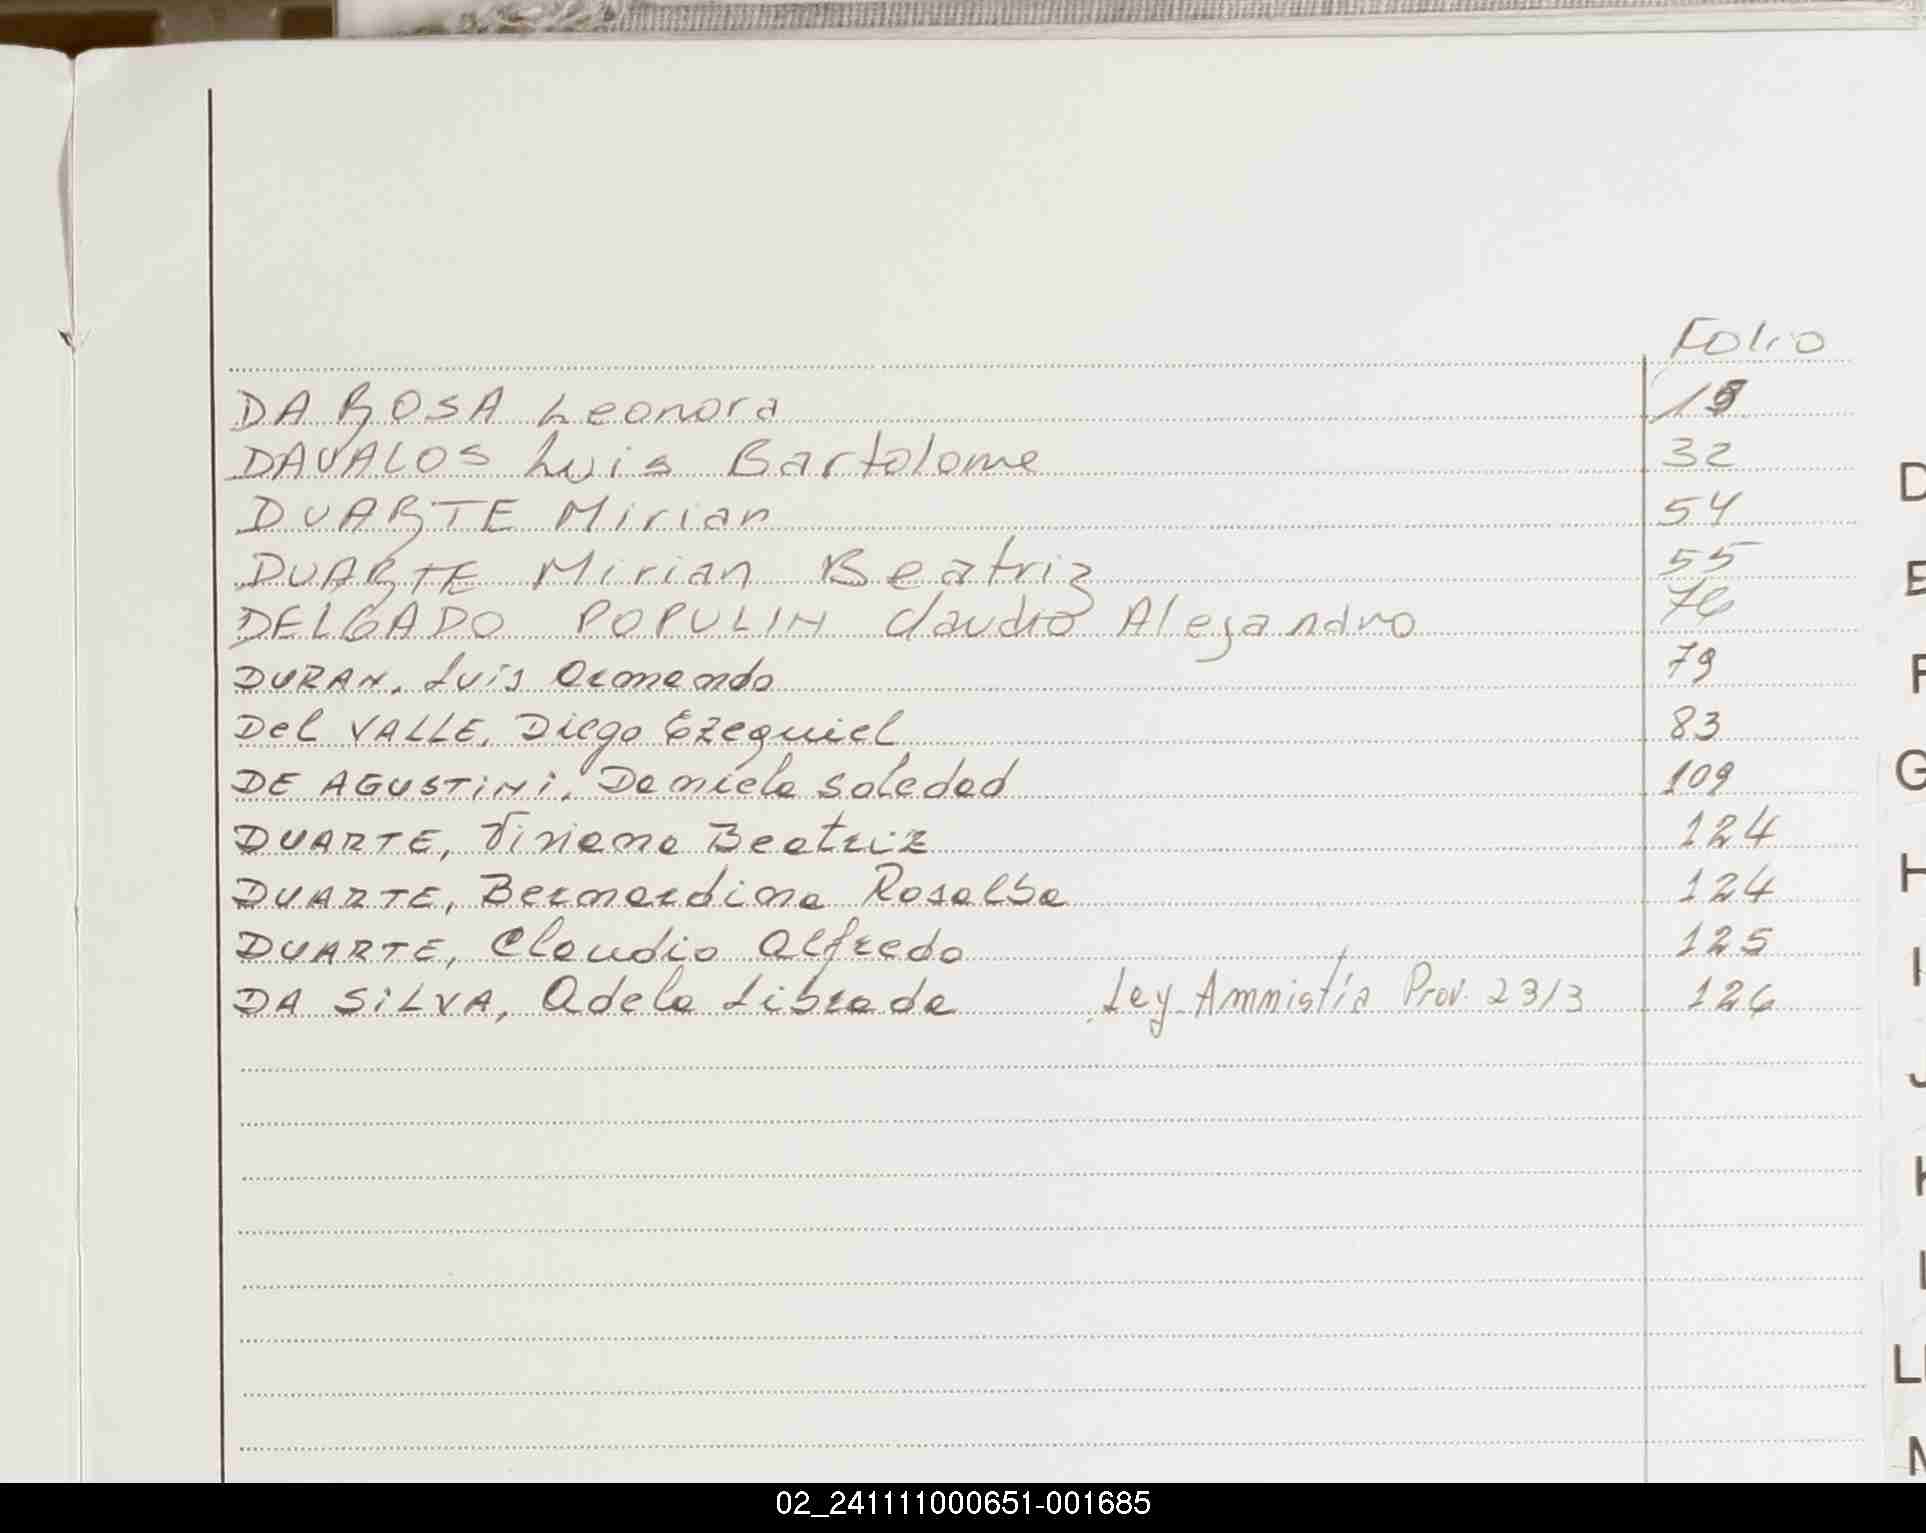 Folio
DA ROSA Leonora
DAVALOS Luis Bartolome 32
DUARTE Mirian 54
DUARTE Mirian Beatriz 55
DELGADO POPULIN Claudio Alejandro 76
DURAN, Luis Armando 79
Del VALLE, Diego Ezequiel 83
DE AGUSTiNi, Daniela Soledad 109
DUARTE, Viviana Beatriz 124
DUARTE, Bernardina Rosalba 124
DUARTE, Claudio Alfredo 125
DA SiLVA, Adela Librada Ley Ammistía Prov. 2313 126
D
E
F
G
H
I
J
K
L
LL
M
02_241111000651-001685